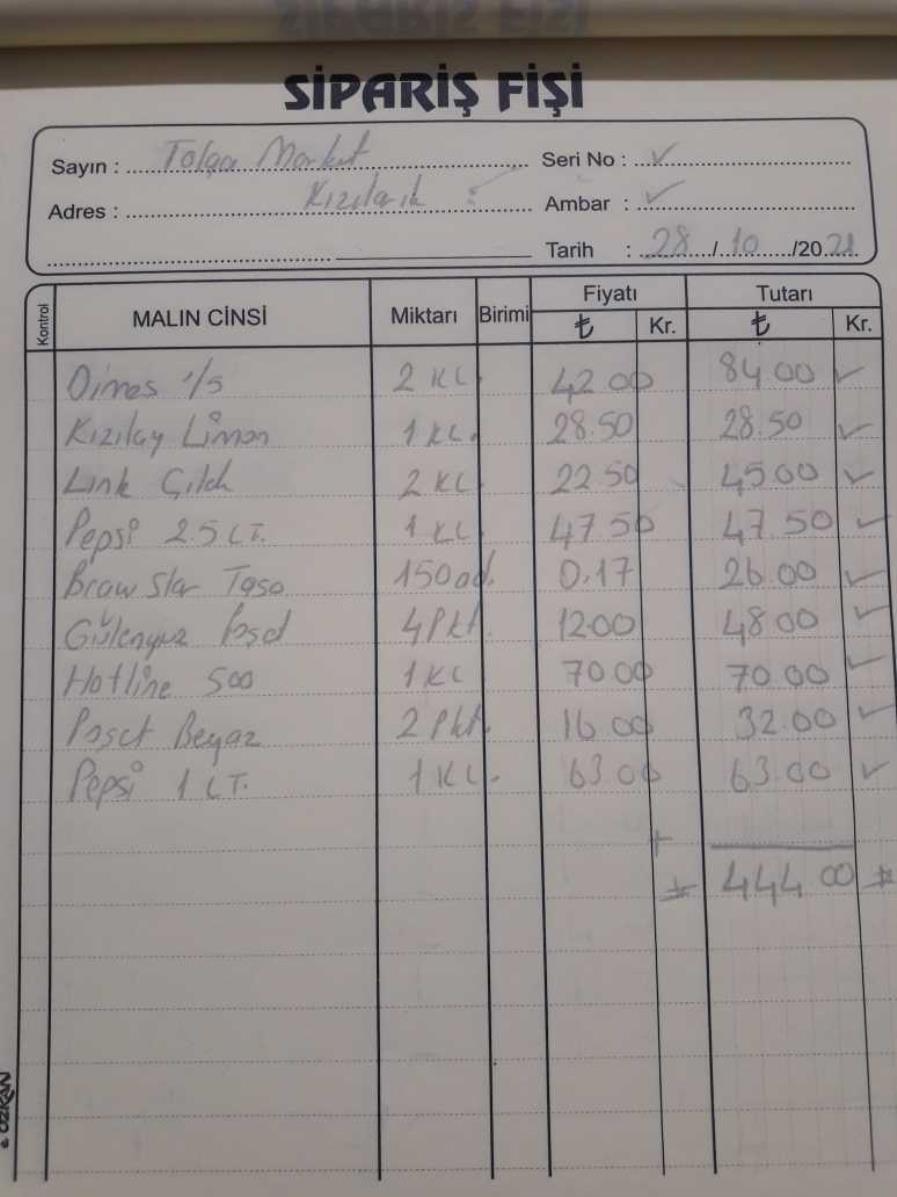 SİPARİŞ FİŞİ
Sayın : Tolga Market Seri No : ✓
Adres : Kızılarık Ambar : ✓
Tarih : 28/10/2021
Kontrol MALIN CİNSİ Miktarı Birimi Fiyatı ₺ Kr. Tutarı ₺ Kr.
Dimes 1/5 2 KL. 42 00 84 00 ✓
Kızılay Limon 1 KL. 28.50 28.50 ✓
Link Çilek 2 KL 22 50 45 00 ✓
Pepsi 2.5 LT. 1 KL 47 50 47.50 ✓
Braw Star Taso 150 ad. 0.17 26.00 ✓
Gülenyüz Poşet 4 Pkt. 12 00 48 00 ✓
Hotline 500 1 KL 70 00 70.00 ✓
Poşet Beyaz 2 Pkt. 16 00 32.00 ✓
Pepsi 1 LT. 1 KL. 63 00 63.00 ✓
+
444 00
ÖZKAN